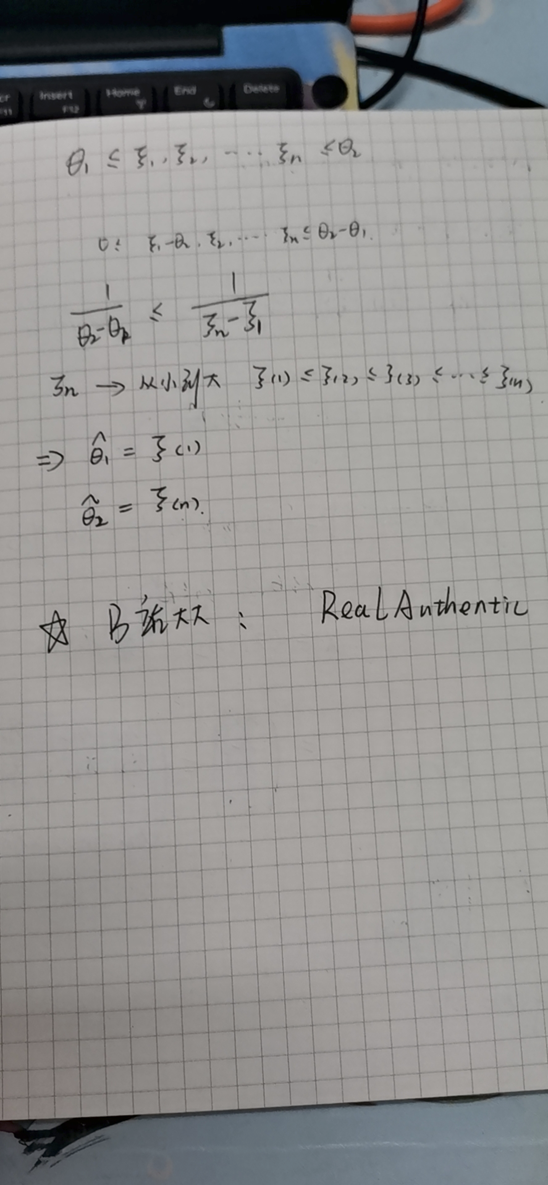 Insert
Home
End
Delete
F11
F12
θ₁ ≤ ξ₁, ξ₂, ⋯ ξₙ ≤ θ₂
ξₙ ≤ θ₂-θ₁.
≤ 1/(ξₙ-ξ₁)
ξₙ → 从小到大 ξ(1) ≤ ξ(2) ≤ ξ(3) ≤ ⋯ ≤ ξ(n)
⇒ θ̂₁ = ξ(1)
θ̂₂ = ξ(n).
☆ B 大 : RealAuthentic